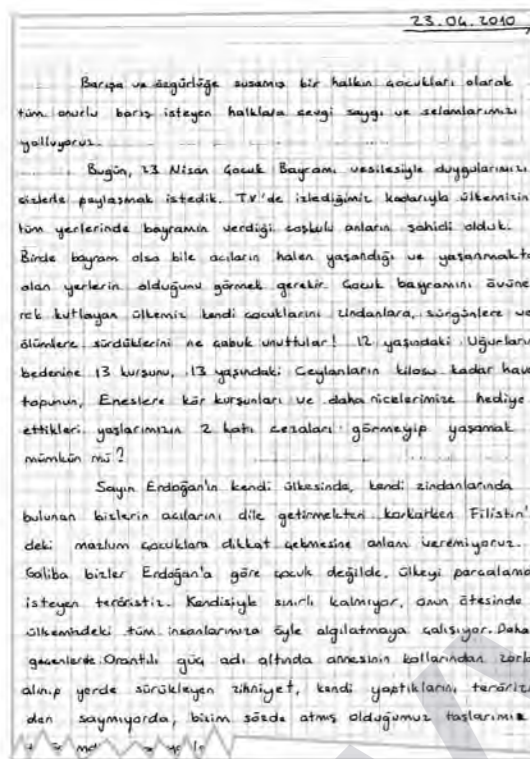 23.04.2010
Barışa ve özgürlüğe susamış bir halkın çocukları olarak
tüm onurlu barış isteyen halklara sevgi saygı ve selamlarımızı
yolluyoruz.
Bugün, 23 Nisan Çocuk Bayramı vesilesiyle duygularımızı
sizlerle paylaşmak istedik. TV'de izlediğimiz kadarıyla ülkemizin
tüm yerlerinde bayramın verdiği coşkulu anların şahidi olduk.
Birde bayram olsa bile acıların halen yaşandığı ve yaşanmakta
olan yerlerin olduğunu görmek gerekir. Çocuk bayramını övüne
rek kutlayan ülkemiz kendi çocuklarını zindanlara, sürgünlere ve
ölümlere sürdüklerini ne çabuk unuttular! 12 yaşındaki Uğurların
bedenine 13 kurşunu, 13 yaşındaki Ceylanların kilosu kadar hava
topunun, Eneslere kör kurşunları ve daha nicelerimize hediye
ettikleri yaşlarımızın 2 katı cezaları görmeyip yaşamak
mümkün mü?
Sayın Erdoğan'ın kendi ülkesinde, kendi zindanlarında
bulunan bizlerin acılarını dile getirmekten korkarken Filistin'
deki mazlum çocuklara dikkat çekmesine anlam veremiyoruz.
Galiba bizler Erdoğan'a göre çocuk değilde, ülkeyi parçalama
isteyen teröristiz. Kendisiyle sınırlı kalmıyor, onun ötesinde
ülkemizdeki tüm insanlarımıza öyle algılatmaya çalışıyor. Daha
geçenlerde Orantılı güç adı altında annesinin kollarından zorla
alınıp yerde sürükleyen zihniyet, kendi yaptıklarını terörizm
den saymıyorda, bizim sözde atmış olduğumuz taşlarımız